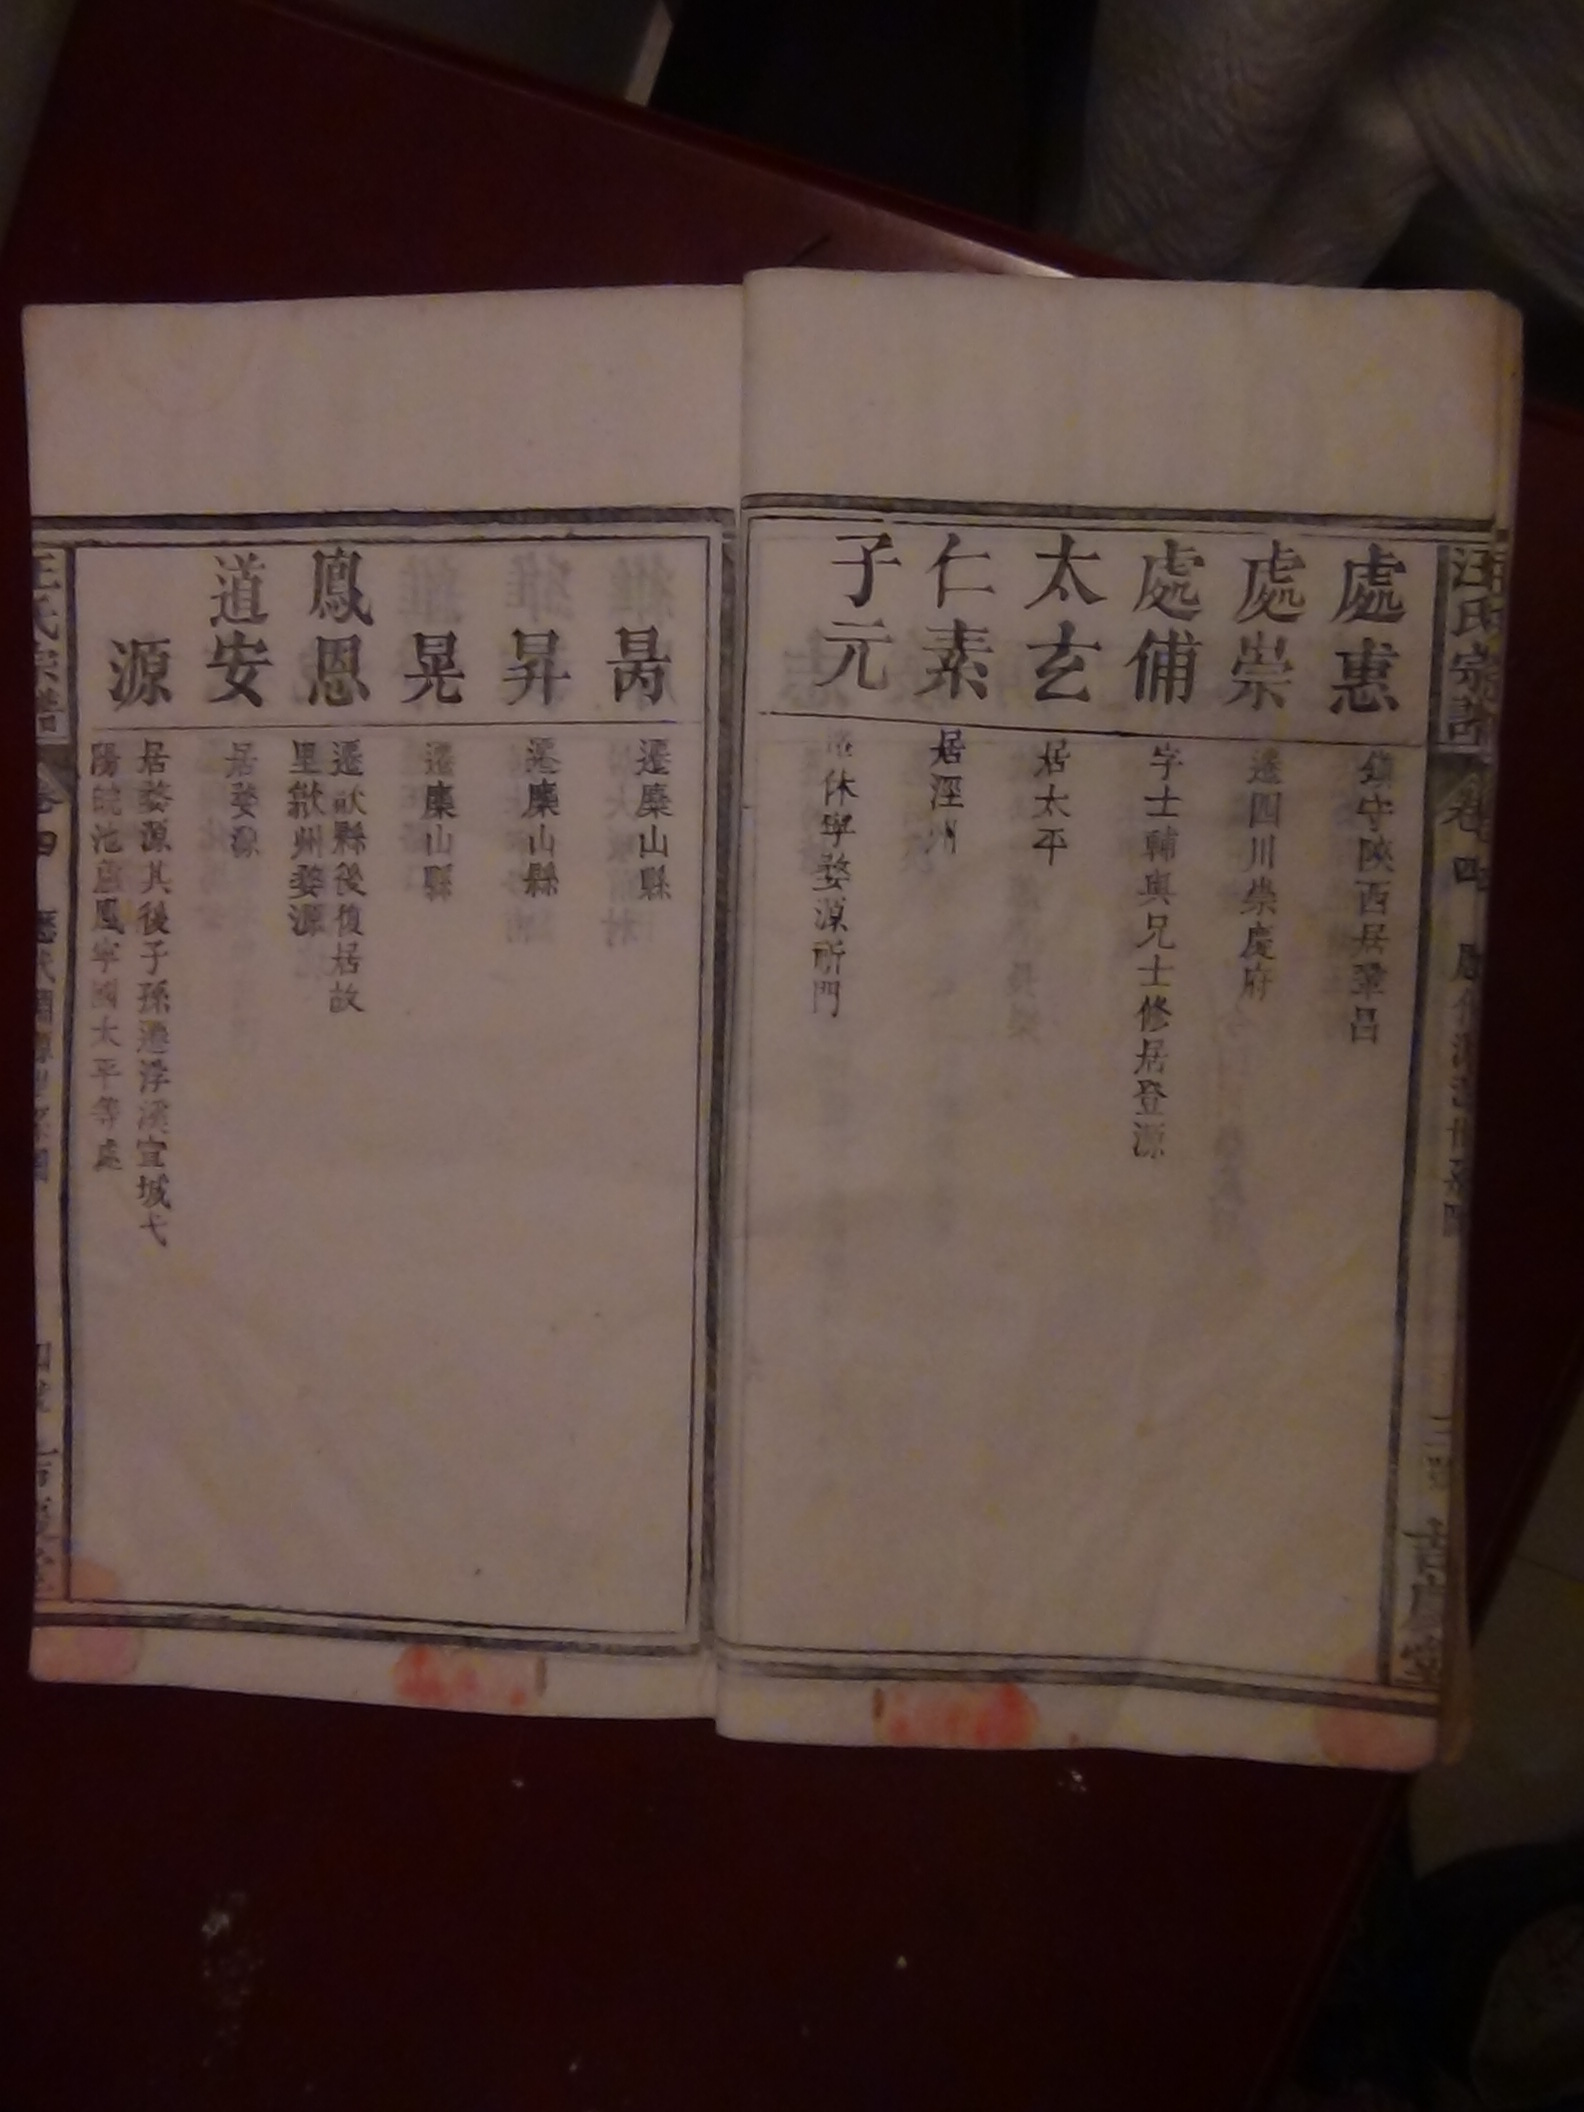 汪氏宗譜 卷四
處惠
鎮守陝西居鞏昌
處崇
遷四川崇慶府
處俌
字士輔與兄士修居登源
太玄
居太平
仁素
居涇州
子元
休寧婺源祈門
暠
遷麋山縣
昇
遷麋山縣
晃
遷麋山縣
鳳恩
遷歙縣後復居故
里歙州婺源
道安
居婺源
源
居婺源其後子孫遷浮溪宣城弋
陽皖池廬鳳寧國太平等處
汪氏宗譜 卷四